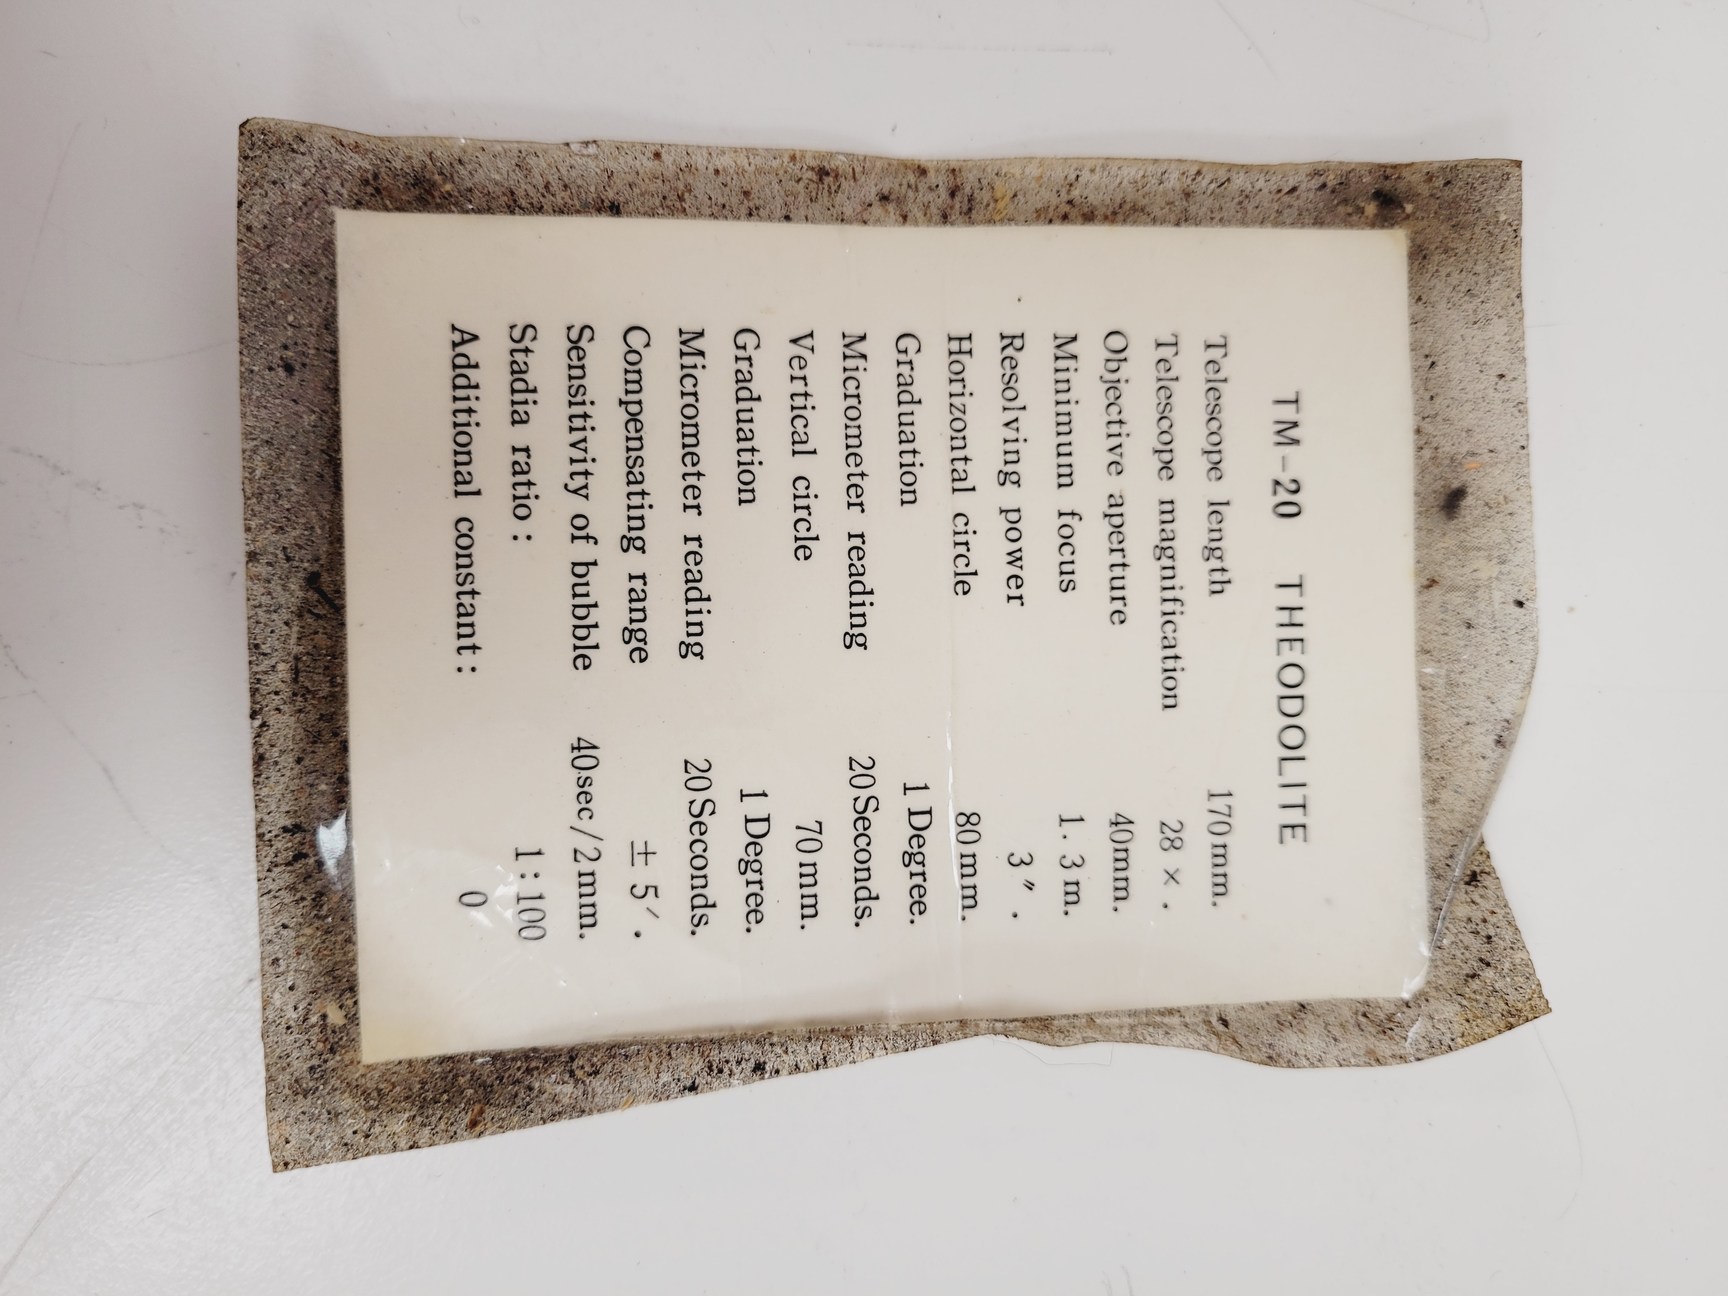 TM-20 THEODOLITE
Telescope length 170mm.
Telescope magnification 28 ×.
Objective aperture 40mm.
Minimum focus 1.3m.
Resolving power 3″.
Horizontal circle 80mm.
Graduation 1 Degree.
Micrometer reading 20Seconds.
Vertical circle 70mm.
Graduation 1 Degree.
Micrometer reading 20Seconds.
Compensating range ± 5′.
Sensitivity of bubble 40sec/2mm.
Stadia ratio: 1:100
Additional constant: 0